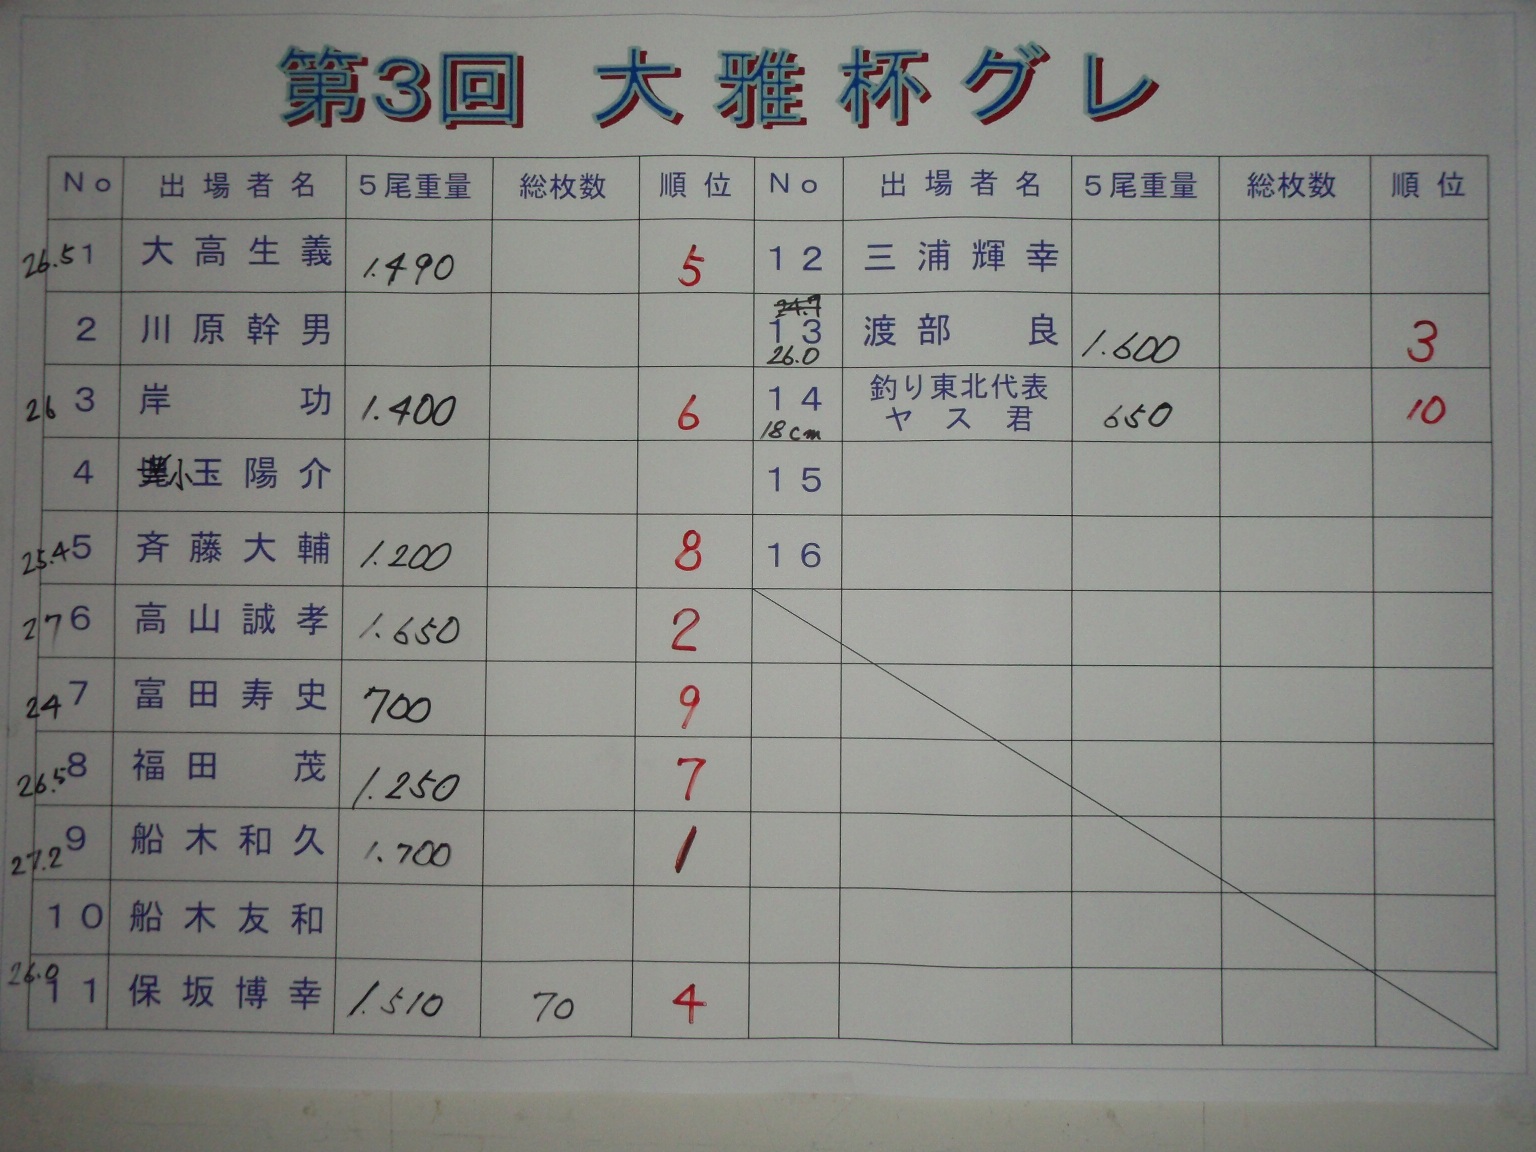 第3回 大雅杯グレ
No 出場者名 5尾重量 総枚数 順位 No 出場者名 5尾重量 総枚数 順位
26.5 1 大高生義 1.490 5 12 三浦輝幸
24.7
2 川原幹男 13 渡部 良 1.600 3
26.0
26 3 岸 功 1.400 6 14 釣り東北代表 ヤス君 650 10
18cm
4 小玉陽介 15
25.4 5 斉藤大輔 1.200 8 16
27 6 高山誠孝 1.650 2
24 7 富田寿史 700 9
26.5 8 福田 茂 1.250 7
27.2 9 船木和久 1.700 1
10 船木友和
26.0 11 保坂博幸 1.510 70 4